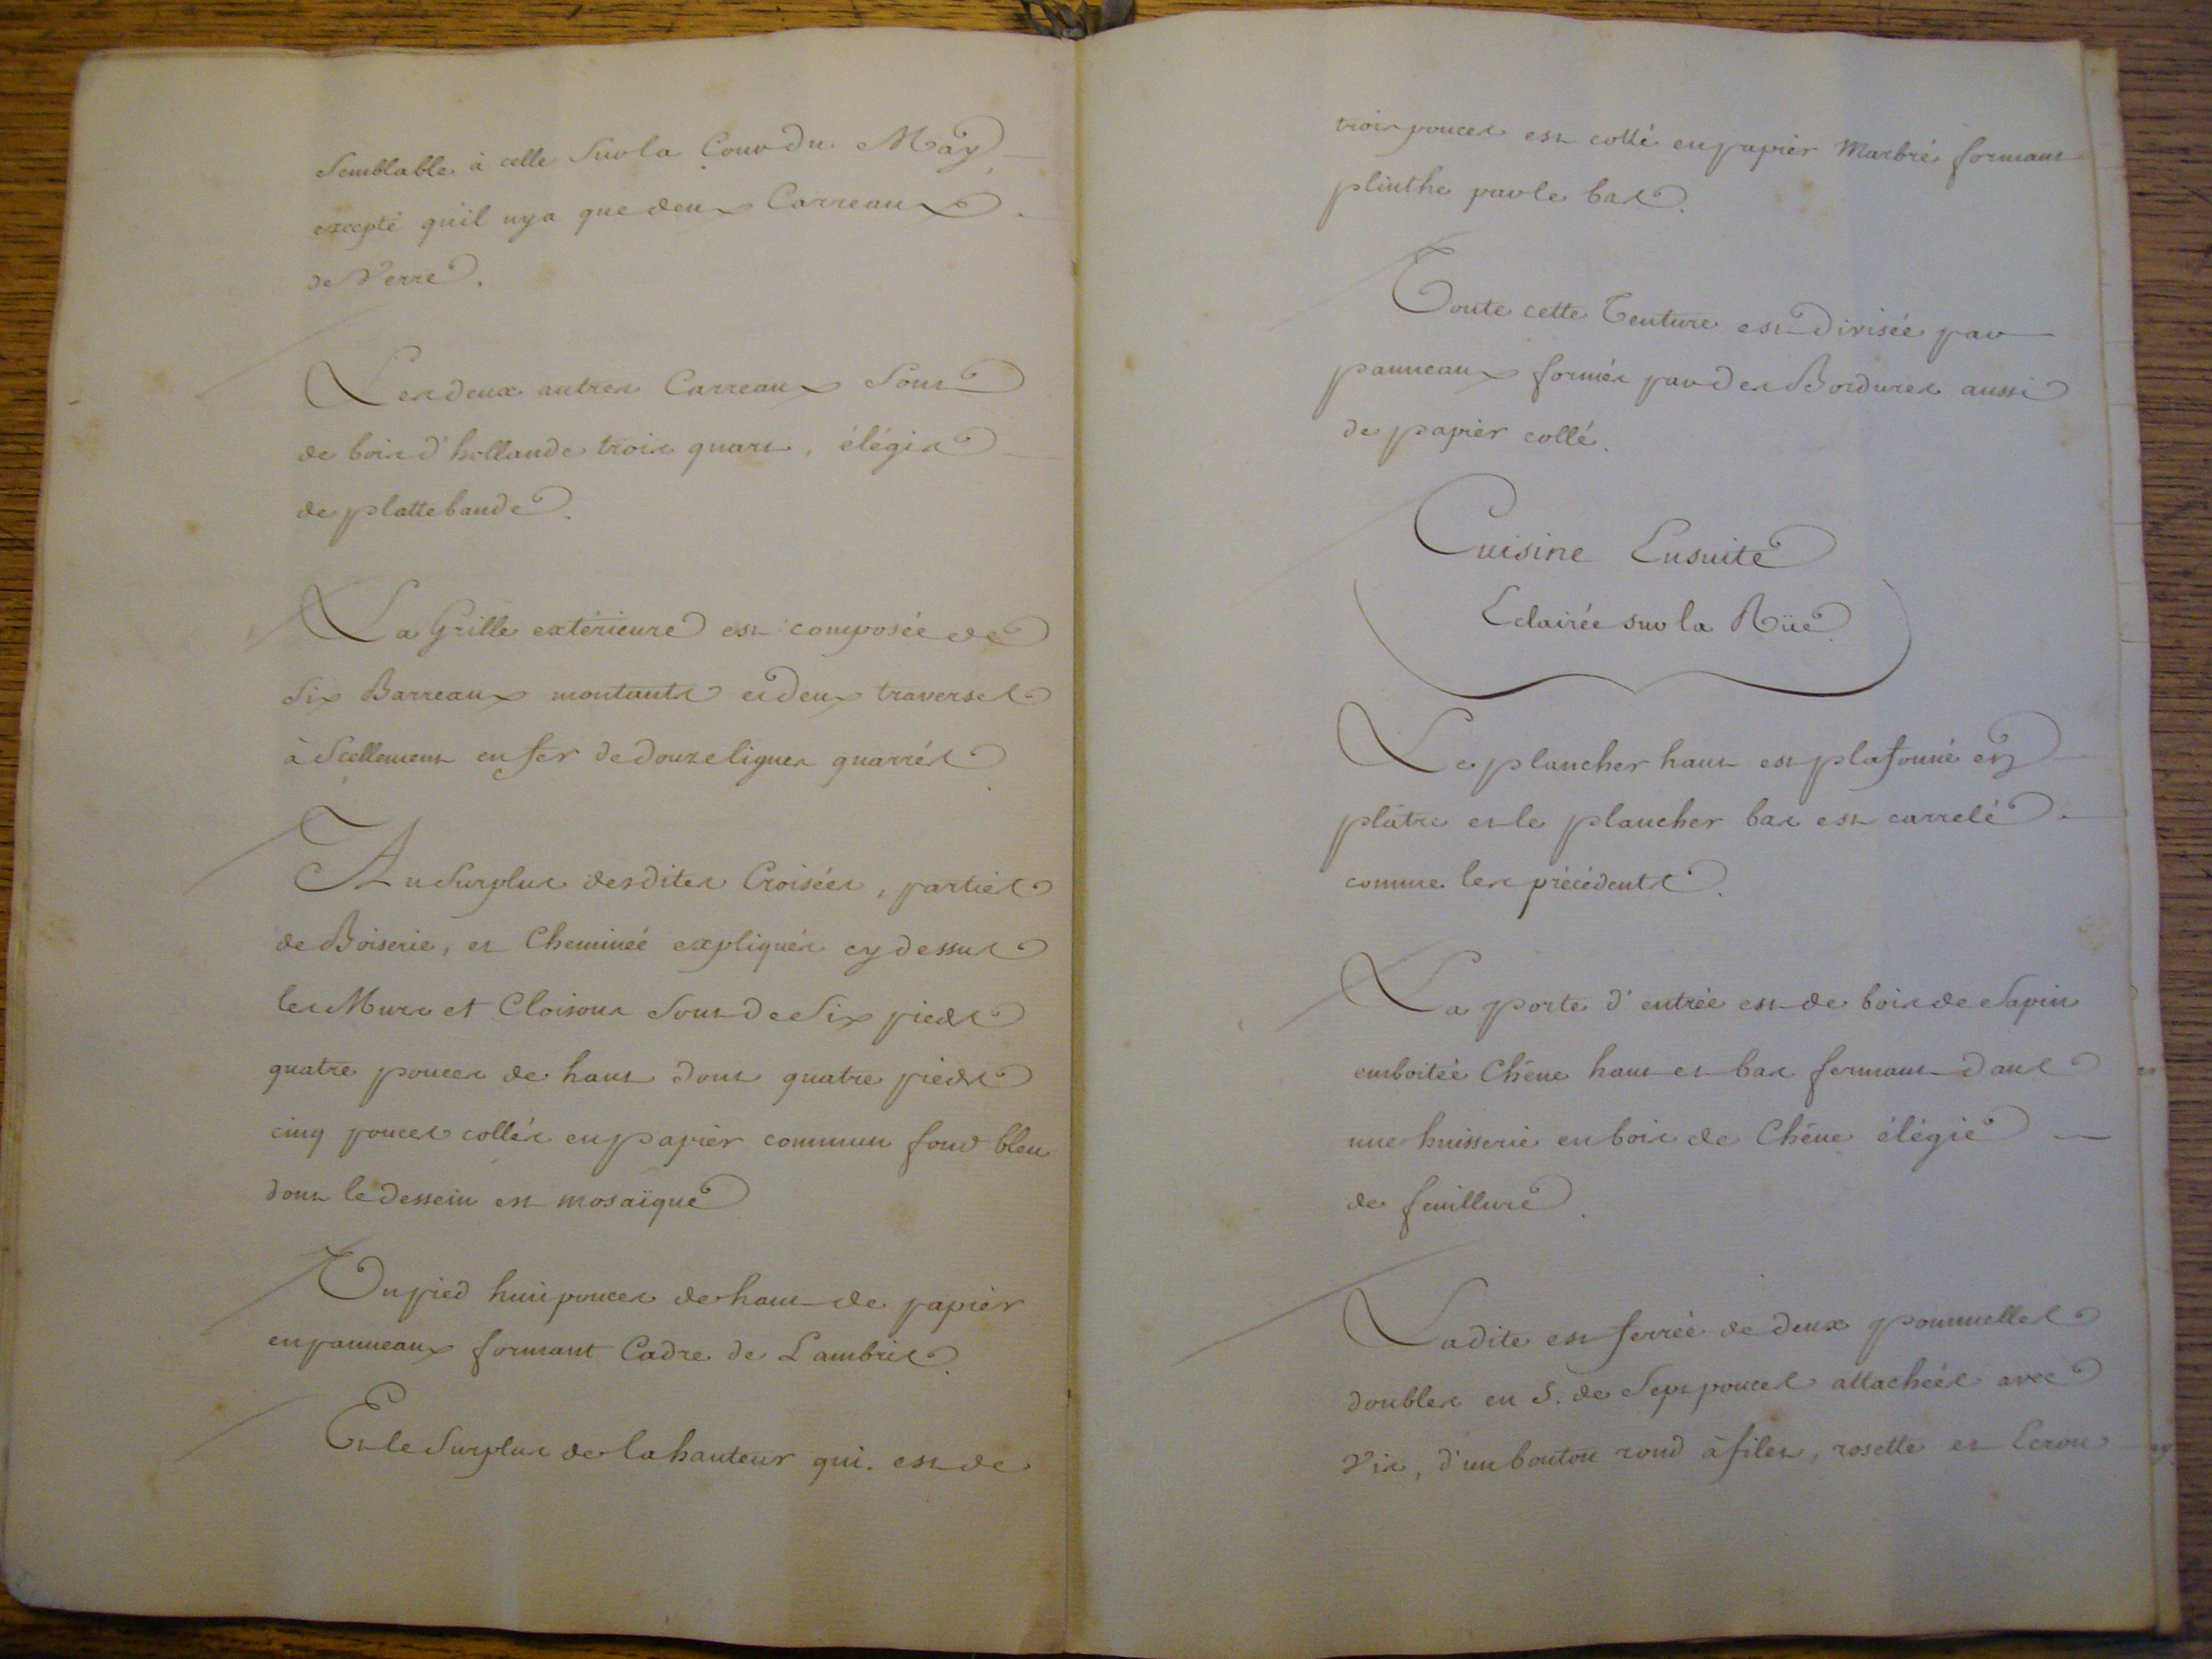 Semblable à celle Sur la Cour du May
excepté qu'il ny a que deux Carreaux
de Verre.
Les deux autres Carreaux Sont
de bois d'hollande trois quart, élégis
de plattebande.
La Grille extérieure est composée de
Six Barreaux montants et deux traverses
à Scellement en fer de douze lignes quarrés.
Au Surplus desdites Croisées, parties
de Boiserie, et Cheminée expliqués cy dessus
les Murs et Cloisons Sont de Six pieds
quatre pouces de haut dont quatre pieds
cinq pouces collés en papier commun fond bleu
dont le dessein est mosaïque
Un pied huit pouces de haut de papier
en panneaux formant Cadre de Lambris.
Et le Surplus de la hauteur qui est de
trois pouces est collé en papier Marbré formant
plinthe par le bas.
Toute cette Tenture est divisée par
panneaux formés par des Bordures aussi
de papier collé.
Cuisine Ensuite
Eclairée sur la Rüe.
Le plancher haut est plafonné en
plâtre et le plancher bas est carrelé
comme les précédents.
La porte d'entrée est de bois de Sapin
emboitée Chêne haut et bas fermant dans
une huisserie en bois de Chêne élégie
de feuillure.
Ladite est ferrée de deux pommelles
doubles en S. de Sept pouces attachées avec
Vis, d'un bouton rond à filet, rosette et Ecrou